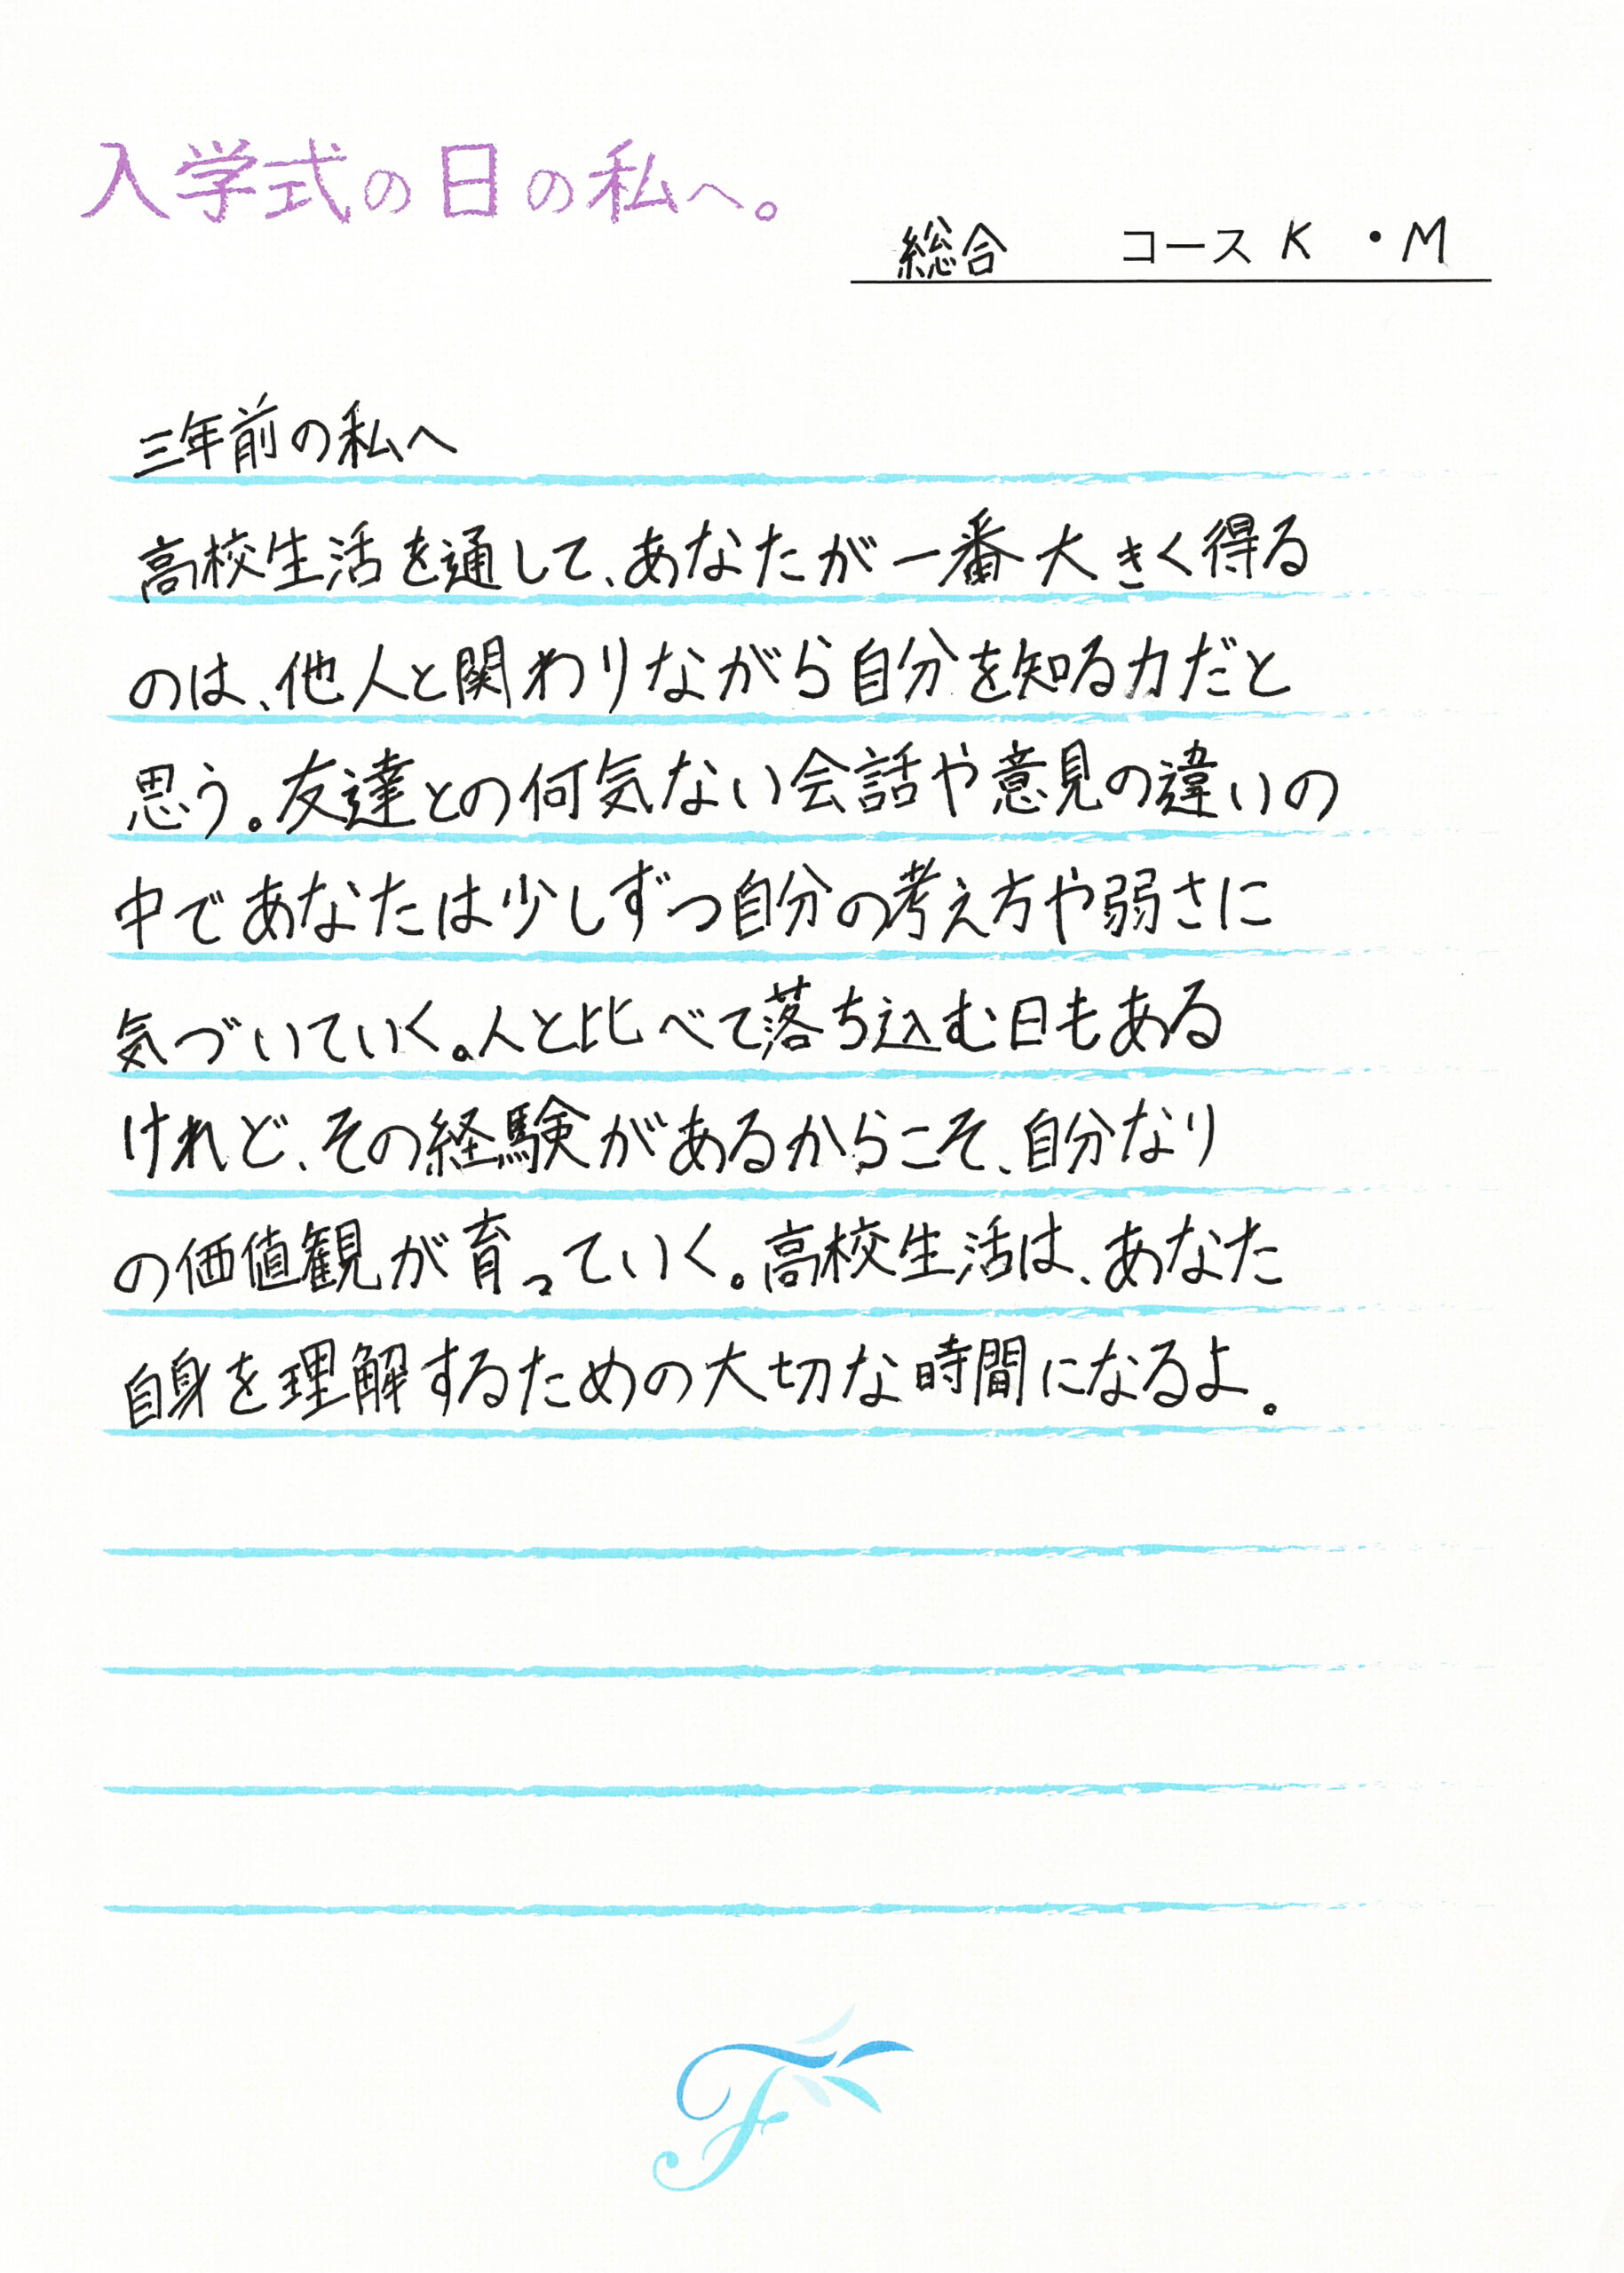 入学式の日の私へ。
総合 コース K ・ M
三年前の私へ
高校生活を通して、あなたが一番大きく得る
のは、他人と関わりながら自分を知る力だと
思う。友達との何気ない会話や意見の違いの
中であなたは少しずつ自分の考え方や弱さに
気づいていく。人と比べて落ち込む日もある
けれど、その経験があるからこそ、自分なり
の価値観が育っていく。高校生活は、あなた
自身を理解するための大切な時間になるよ。
F